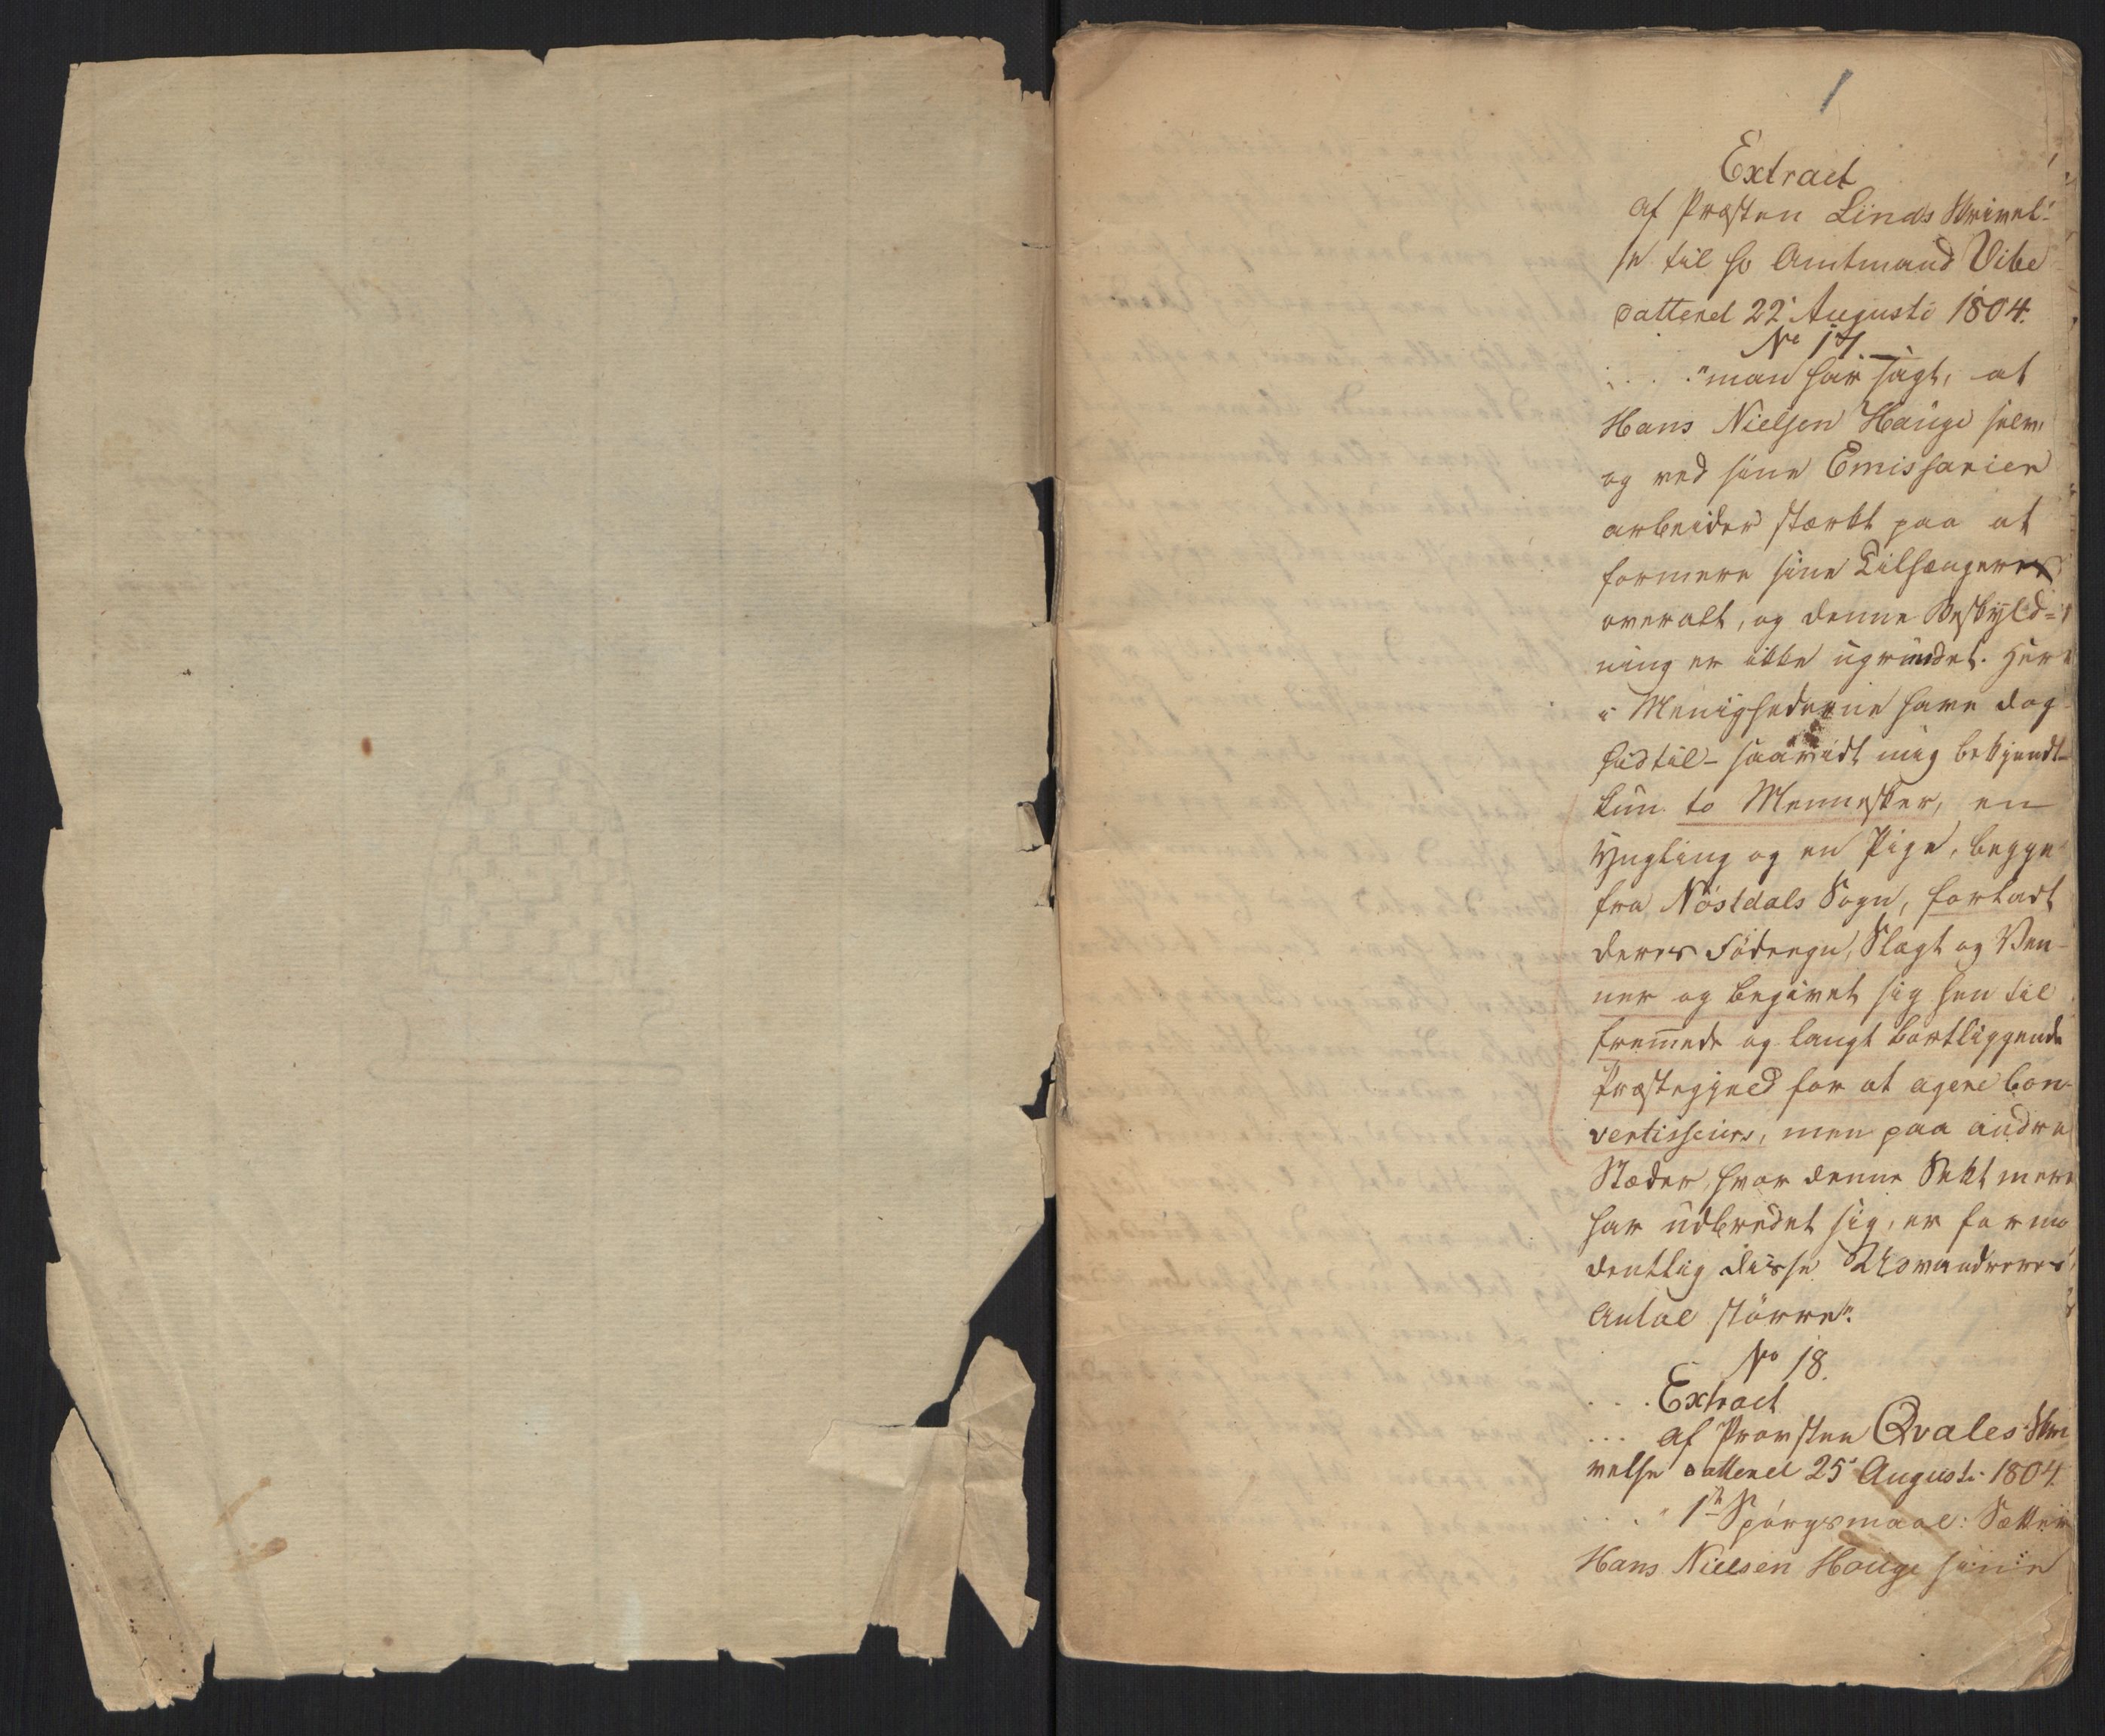 1
Extract
af Præsten Linds Skrivel-
se til Hr Amtmand Vibe
datteret 22 Augusti 1804.
No 17.
. . . "man har sagt, at
Hans Nielsen Hauge selv,
og ved sine Emissarier
arbeider stærkt paa at
formere sine Tilhængere
overalt, og denne Beskyld=
ning er ikke ugrundet. Her
i Menighederne have dog
hidtil - saavidt mig bekjendt-
kun to Mennesker, en
Yngling og en Pige, begge
fra Nöstdals Sogn, forladt
deres Födeegn, Slægt og Ven-
ner og begivet sig hen til
fremmede og langt bortliggende
Præstegjeld for at agere Con-
vertisseurs, men paa andre
Stæder, hvor denne Sekt mere
har udbredet sig, er formo
dentlig disse Udvandreres
Antal större".
No 18.
. . . Extract
... af Provsten Qvales Skri
velse datteret 25 Augusti 1804.
. . . " 1te Spörgsmaal: Sætter
Hans Nielsen Hauge sine